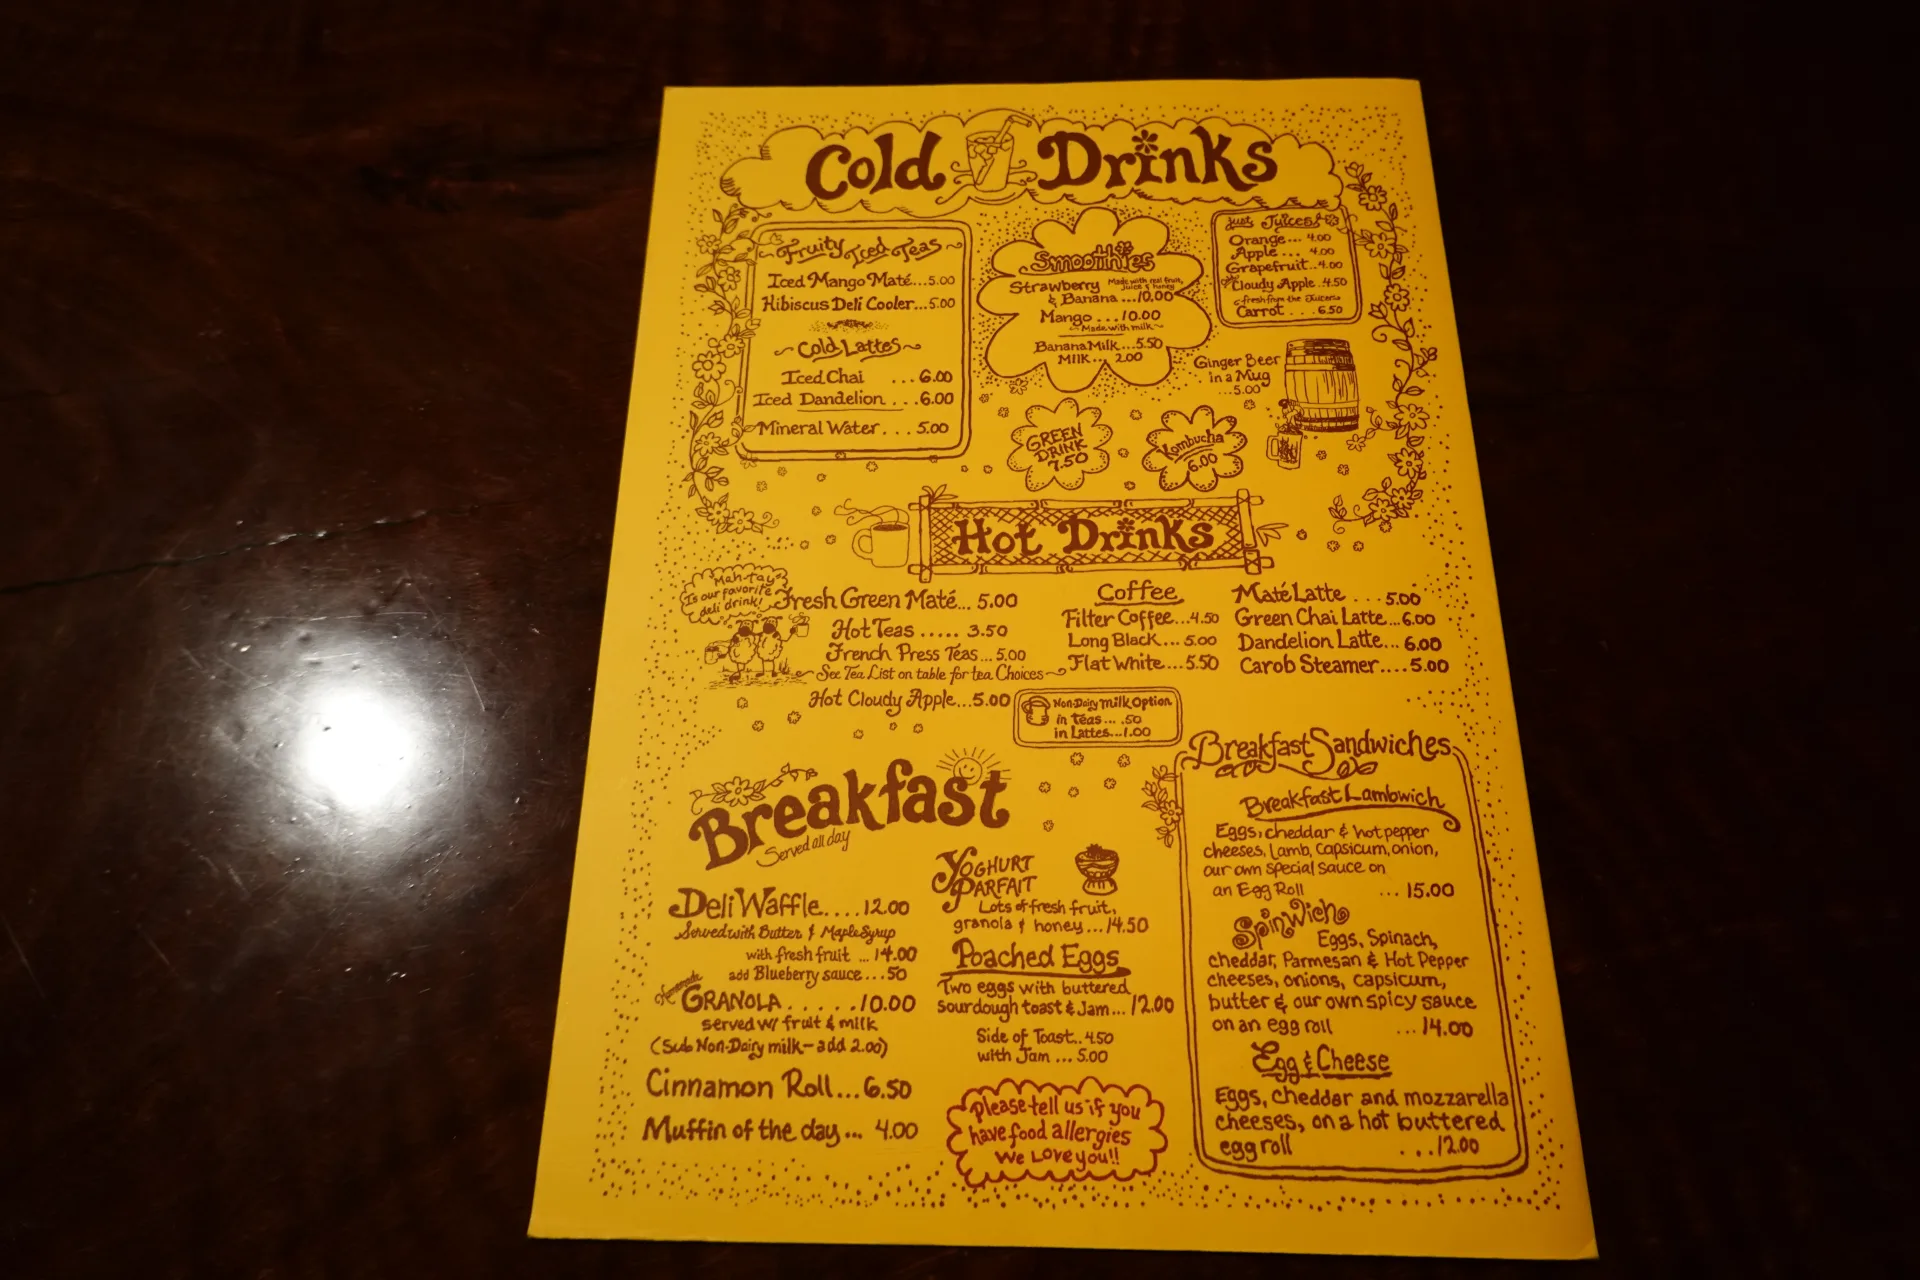 Cold Drinks
Fruity Iced Teas
Iced Mango Maté...5.00
Hibiscus Deli Cooler...5.00
Cold Lattes
Iced Chai ...6.00
Iced Dandelion ...6.00
Mineral Water...5.00
Smoothies
Made with real fruit,
juice & honey
Strawberry
& Banana ...10.00
Mango ...10.00
Made with milk
Banana Milk...5.50
Milk... 2.00
just Juices!
Orange... 4.00
Apple ... 4.00
Grapefruit..4.00
Cloudy Apple .4.50
fresh from the Juicer
Carrot ....6.50
Ginger Beer
in a Mug
...5.00
GREEN
DRINK
7.50
Kombucha
6.00
Hot Drinks
Mah-tay
Is our favorite
deli drink!
Fresh Green Maté... 5.00
Hot Teas ..... 3.50
French Press Teas...5.00
See Tea List on table for tea Choices
Hot Cloudy Apple...5.00
Coffee
Filter Coffee...4.50
Long Black... 5.00
Flat White...5.50
Maté Latte ...5.00
Green Chai Latte...6.00
Dandelion Latte... 6.00
Carob Steamer....5.00
Non-Dairy Milk Option
in Teas... .50
in Lattes...1.00
Breakfast
Served all day
Deli Waffle....12.00
Served with Butter & Maple Syrup
with fresh fruit ...14.00
add Blueberry sauce...50
Homemade
GRANOLA......10.00
served w/ fruit & milk
(Sub Non-Dairy milk-add 2.00)
Cinnamon Roll...6.50
Muffin of the day... 4.00
YOGHURT
PARFAIT
Lots of fresh fruit,
granola & honey...14.50
Poached Eggs
Two eggs with buttered
sourdough toast & Jam...12.00
Side of Toast..4.50
with Jam ...5.00
Please tell us if you
have food allergies
We Love you!!
Breakfast Sandwiches
Breakfast Lambwich
Eggs, cheddar & hot pepper
cheeses, Lamb, Capsicum, onion,
our own special sauce on
an Egg Roll ...15.00
Spinwich
Eggs, Spinach,
cheddar, Parmesan & Hot Pepper
cheeses, onions, capsicum,
butter & our own spicy sauce
on an egg roll ...14.00
Egg & Cheese
Eggs, cheddar and mozzarella
cheeses, on a hot buttered
egg roll ...12.00